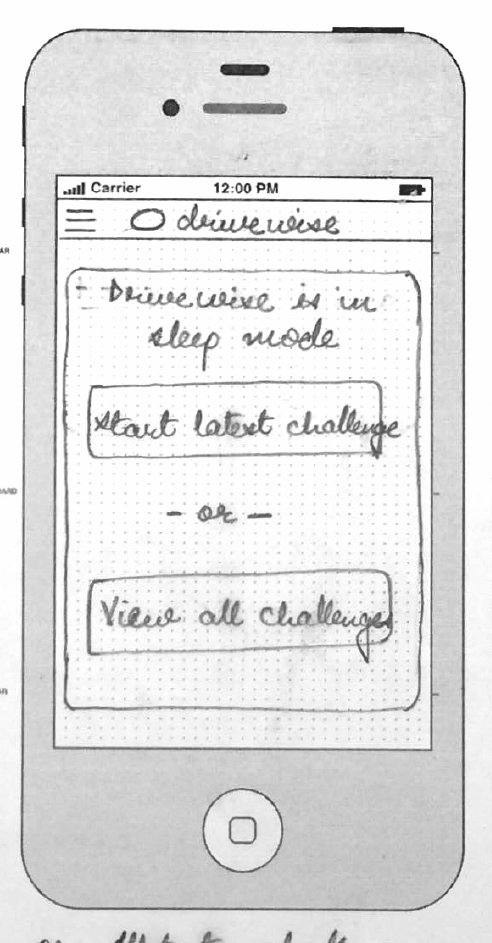 Carrier 12:00 PM
drivewise
Drivewise is in
sleep mode
Start latest challenge
- or -
View all challenges